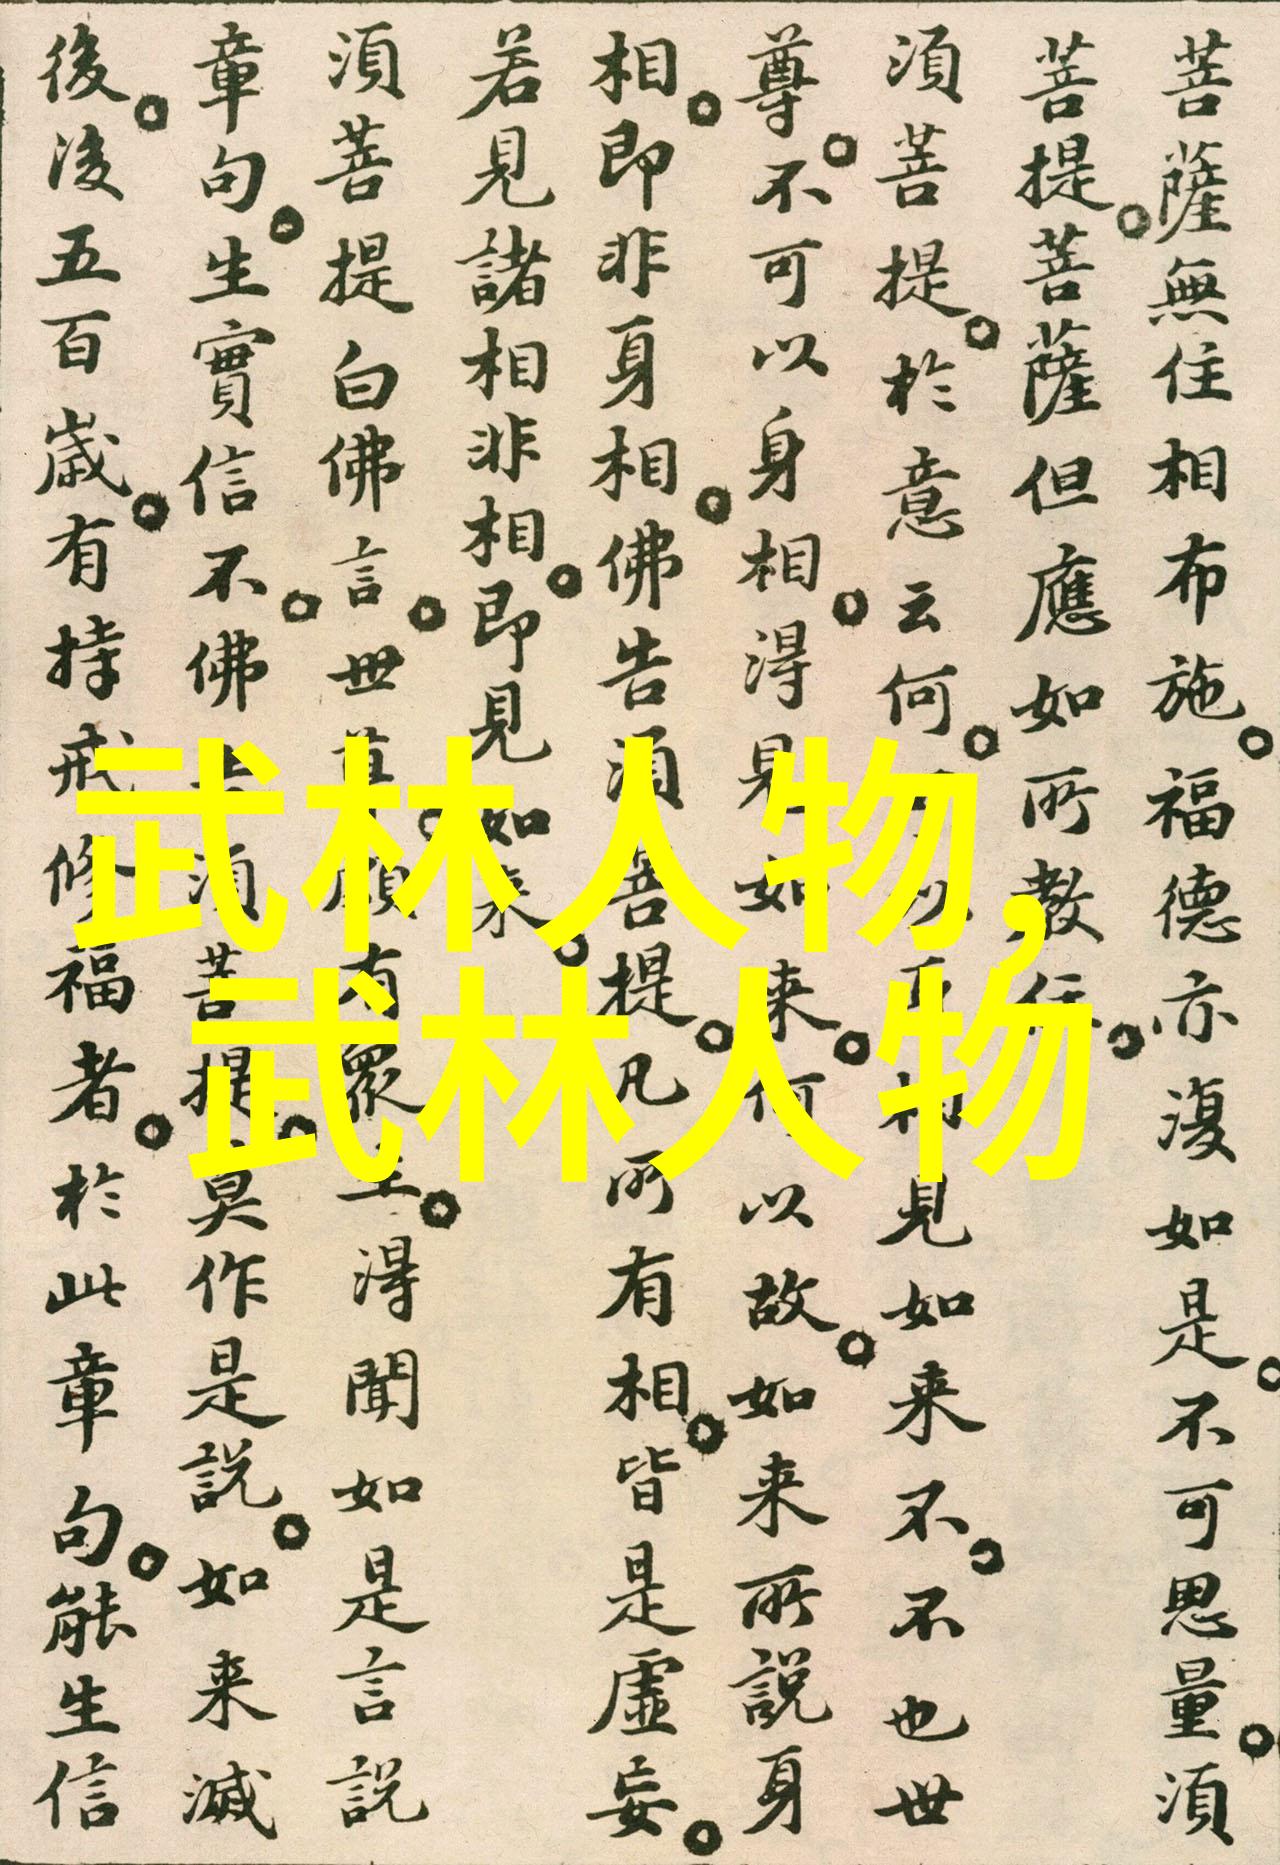 菩薩無住相布施。福德亦復如是。不可思量。須
菩提。菩薩但應如所教住。
須菩提。於意云何。可以身相見如来不。不也世
尊。不可以身相。得見如来。何以故。如来所說身
相。即非身相。佛告須菩提。凡所有相。皆是虛妄。
若見諸相非相。即見如来。
須菩提白佛言。世尊。頗有眾生。得聞如是言說
章句。生實信不。佛告須菩提。莫作是說。如来滅
後。後五百歲。有持戒修福者。於此章句。能生信
武林人物,
武林人物